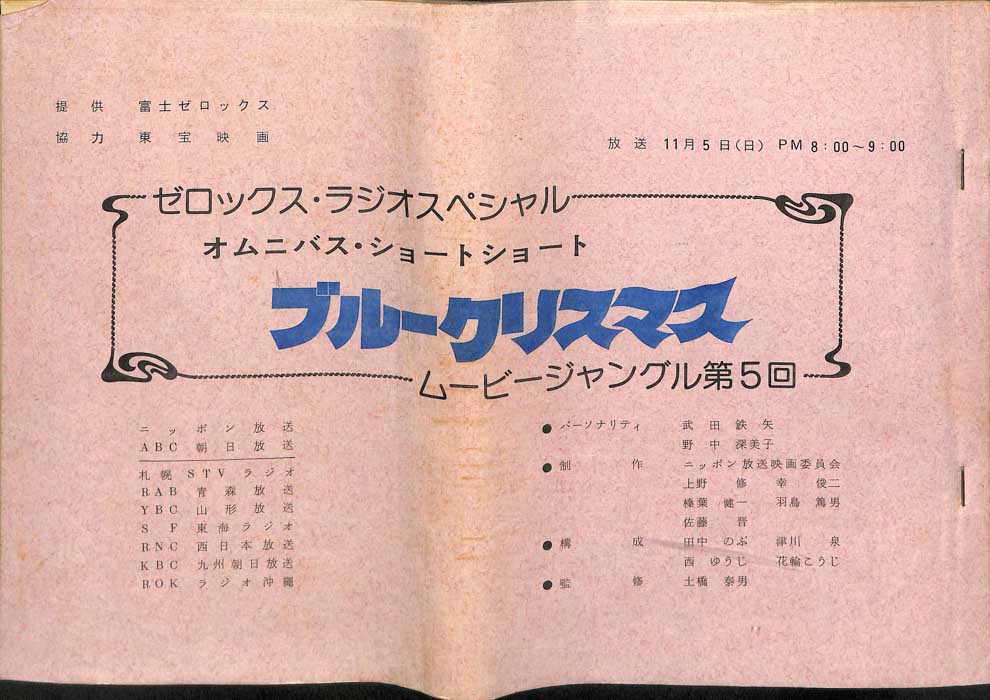 提供 富士ゼロックス
協力 東宝映画
放送 11月5日(日) PM 8:00〜9:00
ゼロックス・ラジオスペシャル
オムニバス・ショートショート
ブルークリスマス
ムービージャングル第5回
ニッポン放送
ABC 朝日放送
札幌 STVラジオ
RAB 青森放送
YBC 山形放送
SF 東海ラジオ
RNC 西日本放送
KBC 九州朝日放送
ROK ラジオ沖縄
●パーソナリティ 武田鉄矢
野中深美子
●制作 ニッポン放送映画委員会
上野修 幸俊二
榛葉健一 羽鳥篤男
佐藤晋
●構成 田中のぶ 津川泉
西ゆうじ 花輪こうじ
●監修 土橋泰男